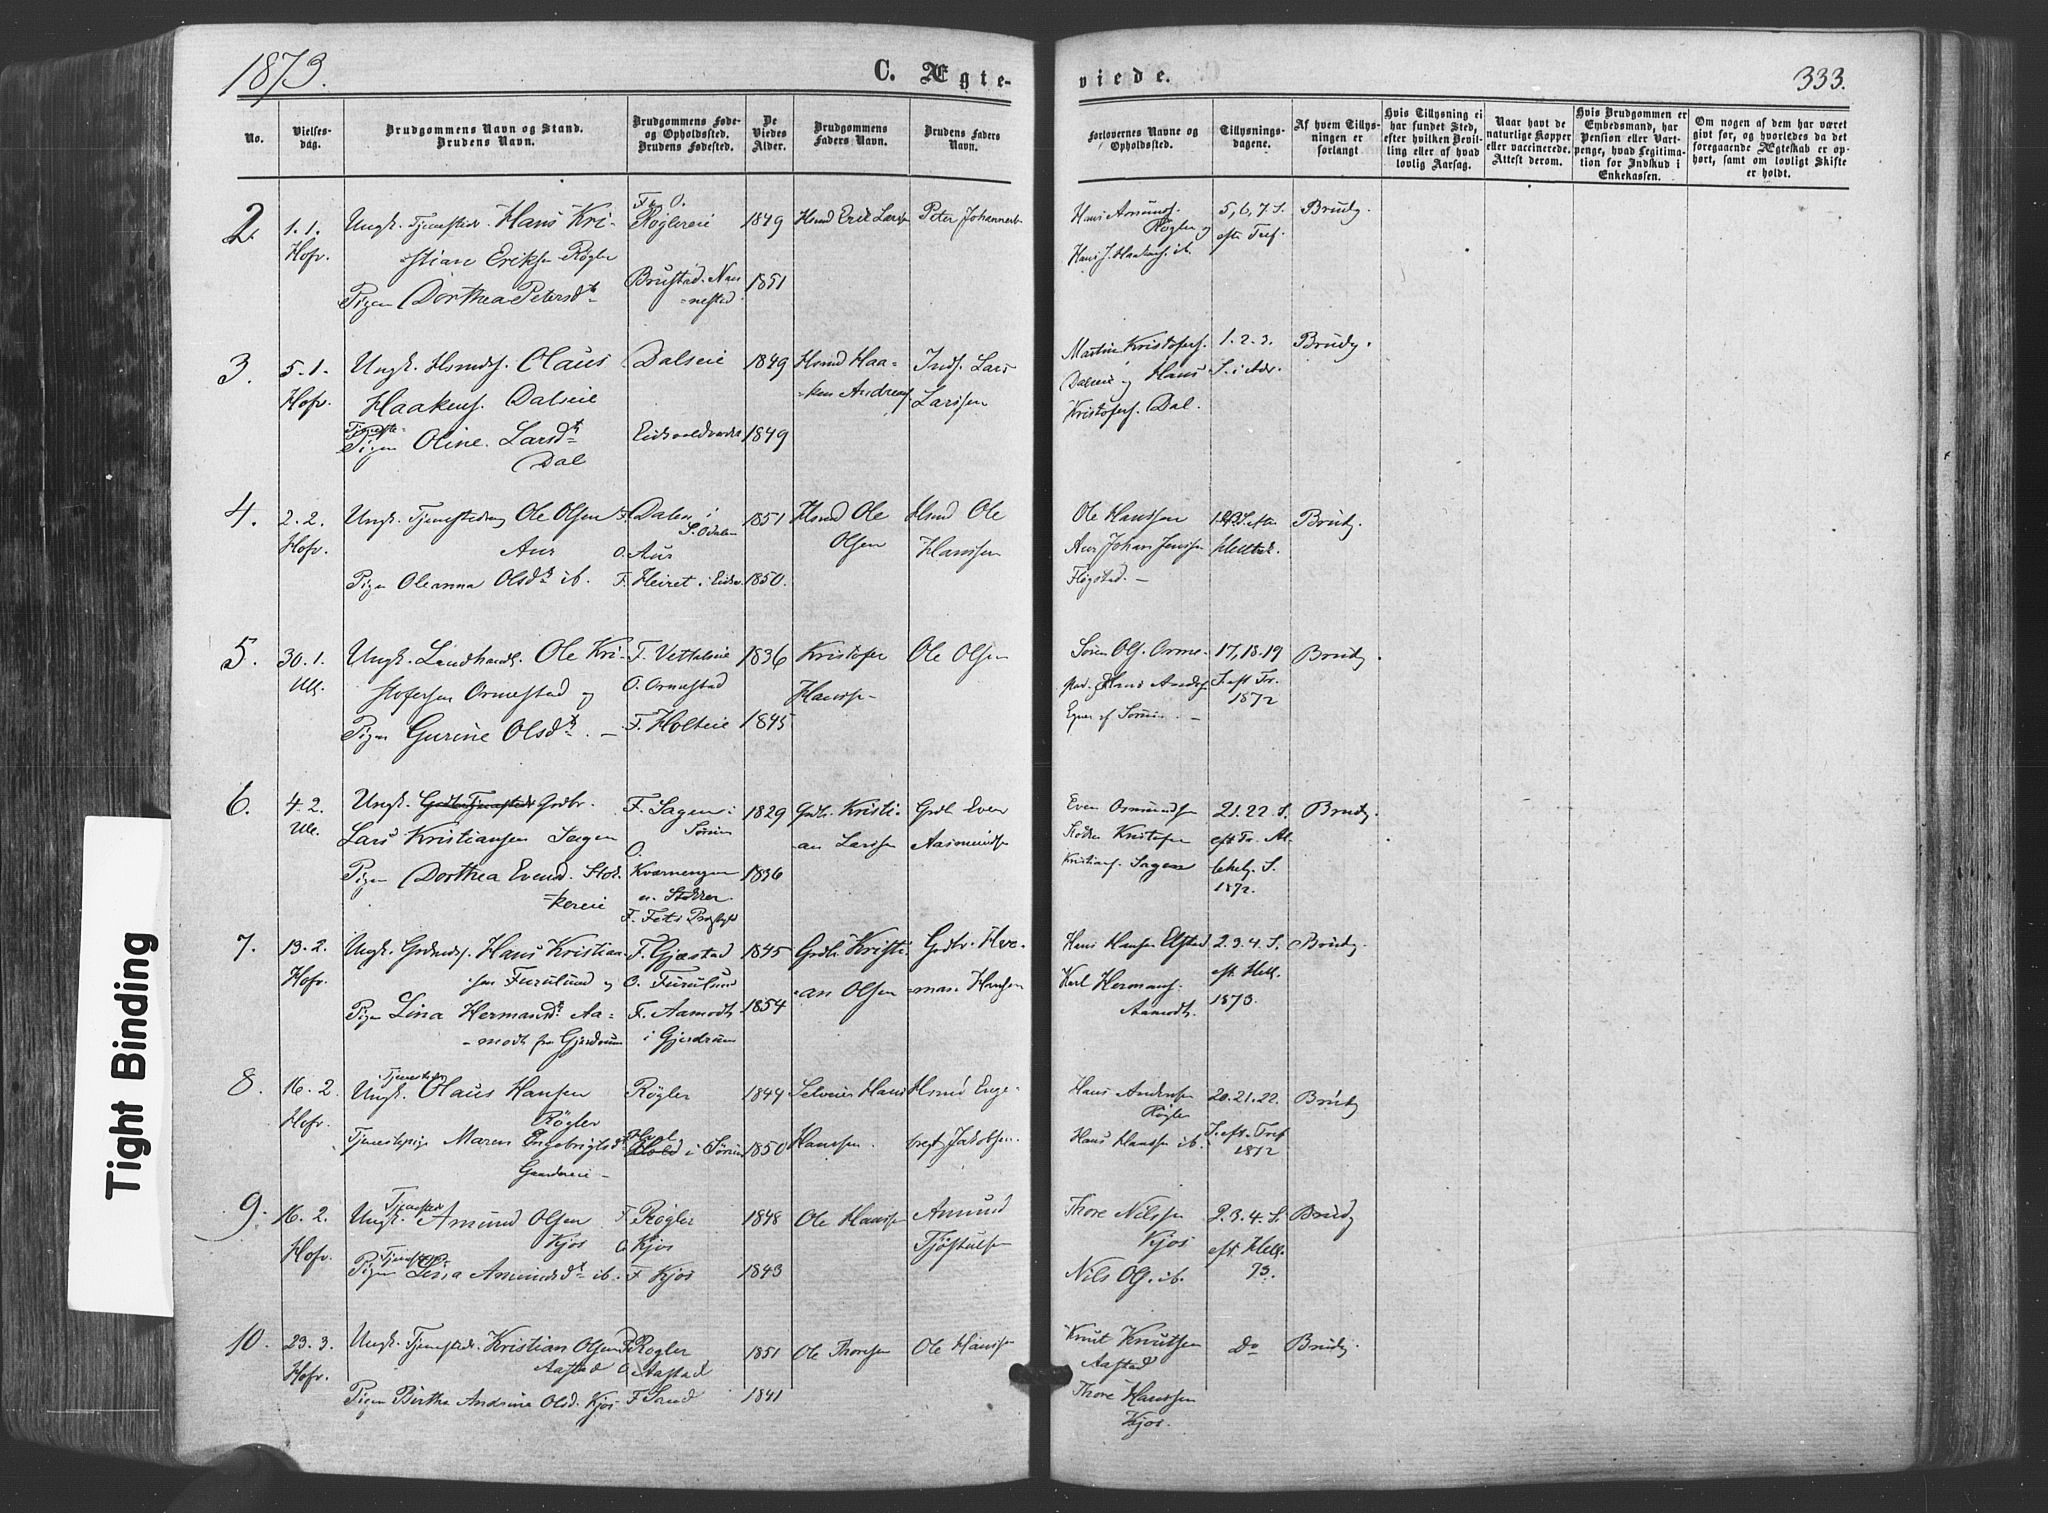 1873.
C. Ægte-
viede.
333.
No.
Vielses-
dag.
Brudgommens Navn og Stand.
Brudens Navn.
Brudgommens Føde-
og Opholdssted.
Brudens Fødested.
De
Viedes
Alder.
Brudgommens
Faders Navn.
Brudens Faders
Navn.
Forlovernes Navne og
Opholdssted.
Tillysnings-
dagene.
Af hvem Tillys-
ningen er
forlangt
Hvis Tillysning ei
har fundet Sted,
efter hvilken Bevil-
ling eller af hvad
lovlig Aarsag.
Naar havt de
naturlige Kopper
eller vaccinerede.
Attest derom.
Hvis Brudgommen er
Embedsmand, har
Pension eller Vart-
penge, hvad Legitima-
tion for Indskud i
Enkekassen.
Om nogen af dem har været
gift før, og hvorledes da det
foregaaende Ægteskab er op-
hørt, samt om lovligt Skifte
er holdt.
2.
1.1.
Hofv.
Ungk. Tjenestedr. Hans Kri-
stian Eriksen Røgler
Pigen Dorthea Petersdt.
F. O.
Røglereie
Brustad. Nan-
nestad.
1849
1851
Hsmd Erik Larsen
Peter Johannes
Hans Amunds.
Røgler og
Hans J. Haakens. ib.
5, 6, 7. S.
efter Tref.
Brudg.
3.
5.1.
Hofv.
Ungk. Hsmds. Olaus
Haakens. Dalseie
Tjeneste-
Pigen Oline Larsdt.
Dal
Dalseie
Eidsvoldverket
1849
1849
Hsmd Haa-
ken Andreas
Inds. Lars
Larssen
Martin Kristofers.
Dalseie og Hans
Kristofers. Dal.
1. 2. 3.
S. i Adv.
Brudg.
4.
2.2.
Hofv.
Ungk. Tjenestedreng Ole Olsen
Aur
Pigen Oleanna Olsdt. ib.
F. Dalen i
S. Odalen
O. Aur
F. Heiret i Eidsv.
1851
1850.
Hsmd Ole
Olsen
Hsmd Ole
Hanssen
Ole Hanssen
Aur Johan Jenssen
Fløgstad.
Brudg.
5.
30.1.
Ull.
Ungk. Landhandl. Ole Kri-
stofersen Ormestad og
Pigen Gurine Olsdt.
F. Vettaleie
O. Ormestad
F. Holteie
1836
1845
Kristofer
Hanss.
Ole Olsen
Søren Ols. Orme-
stad. Hans Anders.
Egner af Sørum.
17, 18. 19
S. eft Tr.
1872
Brudg.
6.
4.2.
Ull.
Ungk. Grdbr.
Lars Kristiansen Sagen
Pigen Dorthea Evensd. Stok-
kereie
F. Sagen i
Sørum
O.
Kværnengen
u. Stokker
F. Fets Præstgjeld
1829
1836
Grdbr. Kristi-
an Larssen
Grdbr. Even
Aasmundsen
Even Osmundsen
Stokker Kristofer
Kristians. Sagen
21. 22. S.
eft Tr. Al-
lehelg. S.
1872.
Brudg.
7.
13.2.
Hofv.
Ungk. Grdmds. Hans Kristian-
sen Furulund og
Pigen Lina Hermansdt. Aa-
modt fra Gjerdrum
F. Gjæstad
O. Furulund
F. Aamodt
i Gjerdrum
1845
1854
Grdbr. Kristi-
an Olsen
Grdbr. Her-
man Hansen
Hans Hansen Elstad
Karl Hermans.
Aamodt.
2. 3. 4. S.
eft. Hell.
1873.
Brudg.
8.
16.2.
Hofv.
Tjenestedr.
Ungk. Olaus Hansen
Røgler
Tjenestepige Maren Engebrigtsdt.
Gaardereie
Røgler
i Sørum
1844
1850
Selveier Hans
Hanssen.
Hsmd Enge-
bregt Jakobsen.
Hans Andersen
Røgler
Hans Hanssen ib.
20. 21. 22.
S. eft. Tref
1872
Brudg
9.
16.2.
Hofv.
Tjenestedr.
Ungk. Amund Olsen
Kjos
Tjeneste
Pigen Lina Amundsdt. ib.
F. Røgler
O. Kjos
F. Kjos
1848
1843
Ole Hanssen
Amund
Tjøstulsen
Thore Nilssen
Kjos
Nils Ols. ib.
2. 3. 4. S.
eft. Hell.
73.
Brudg
10.
23.3.
Hofv.
Ungk. Tjenestedr. Kristian Olsen
Aastad
Pigen Birthe Andrine Olsd. Kjos
F. Røgler
O. Aastad
F. Sand
1851
1841
Ole Thoresen
Ole Hanssen
Knut Knutsen
Aastad
Thore Hanssen
Kjos.
Do
Brudg.
Tight Binding